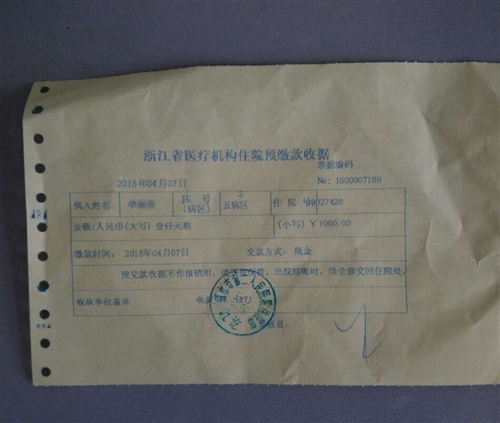 浙江省医疗机构住院预缴款收据
票据编码
2015年04月07日
№: 1600007189
病人姓名 单 床 号(病区) 2 五病区 住 院 号 0027428
金额:人民币(大写) 壹仟元整 (小写) ¥ 1000.00
缴款时间: 2015年04月07日 交款方式: 现金
预交款收据不作报销用, 出院结帐时, 须全部交回住院处.
收款单位盖章 收款
市第二人民医院